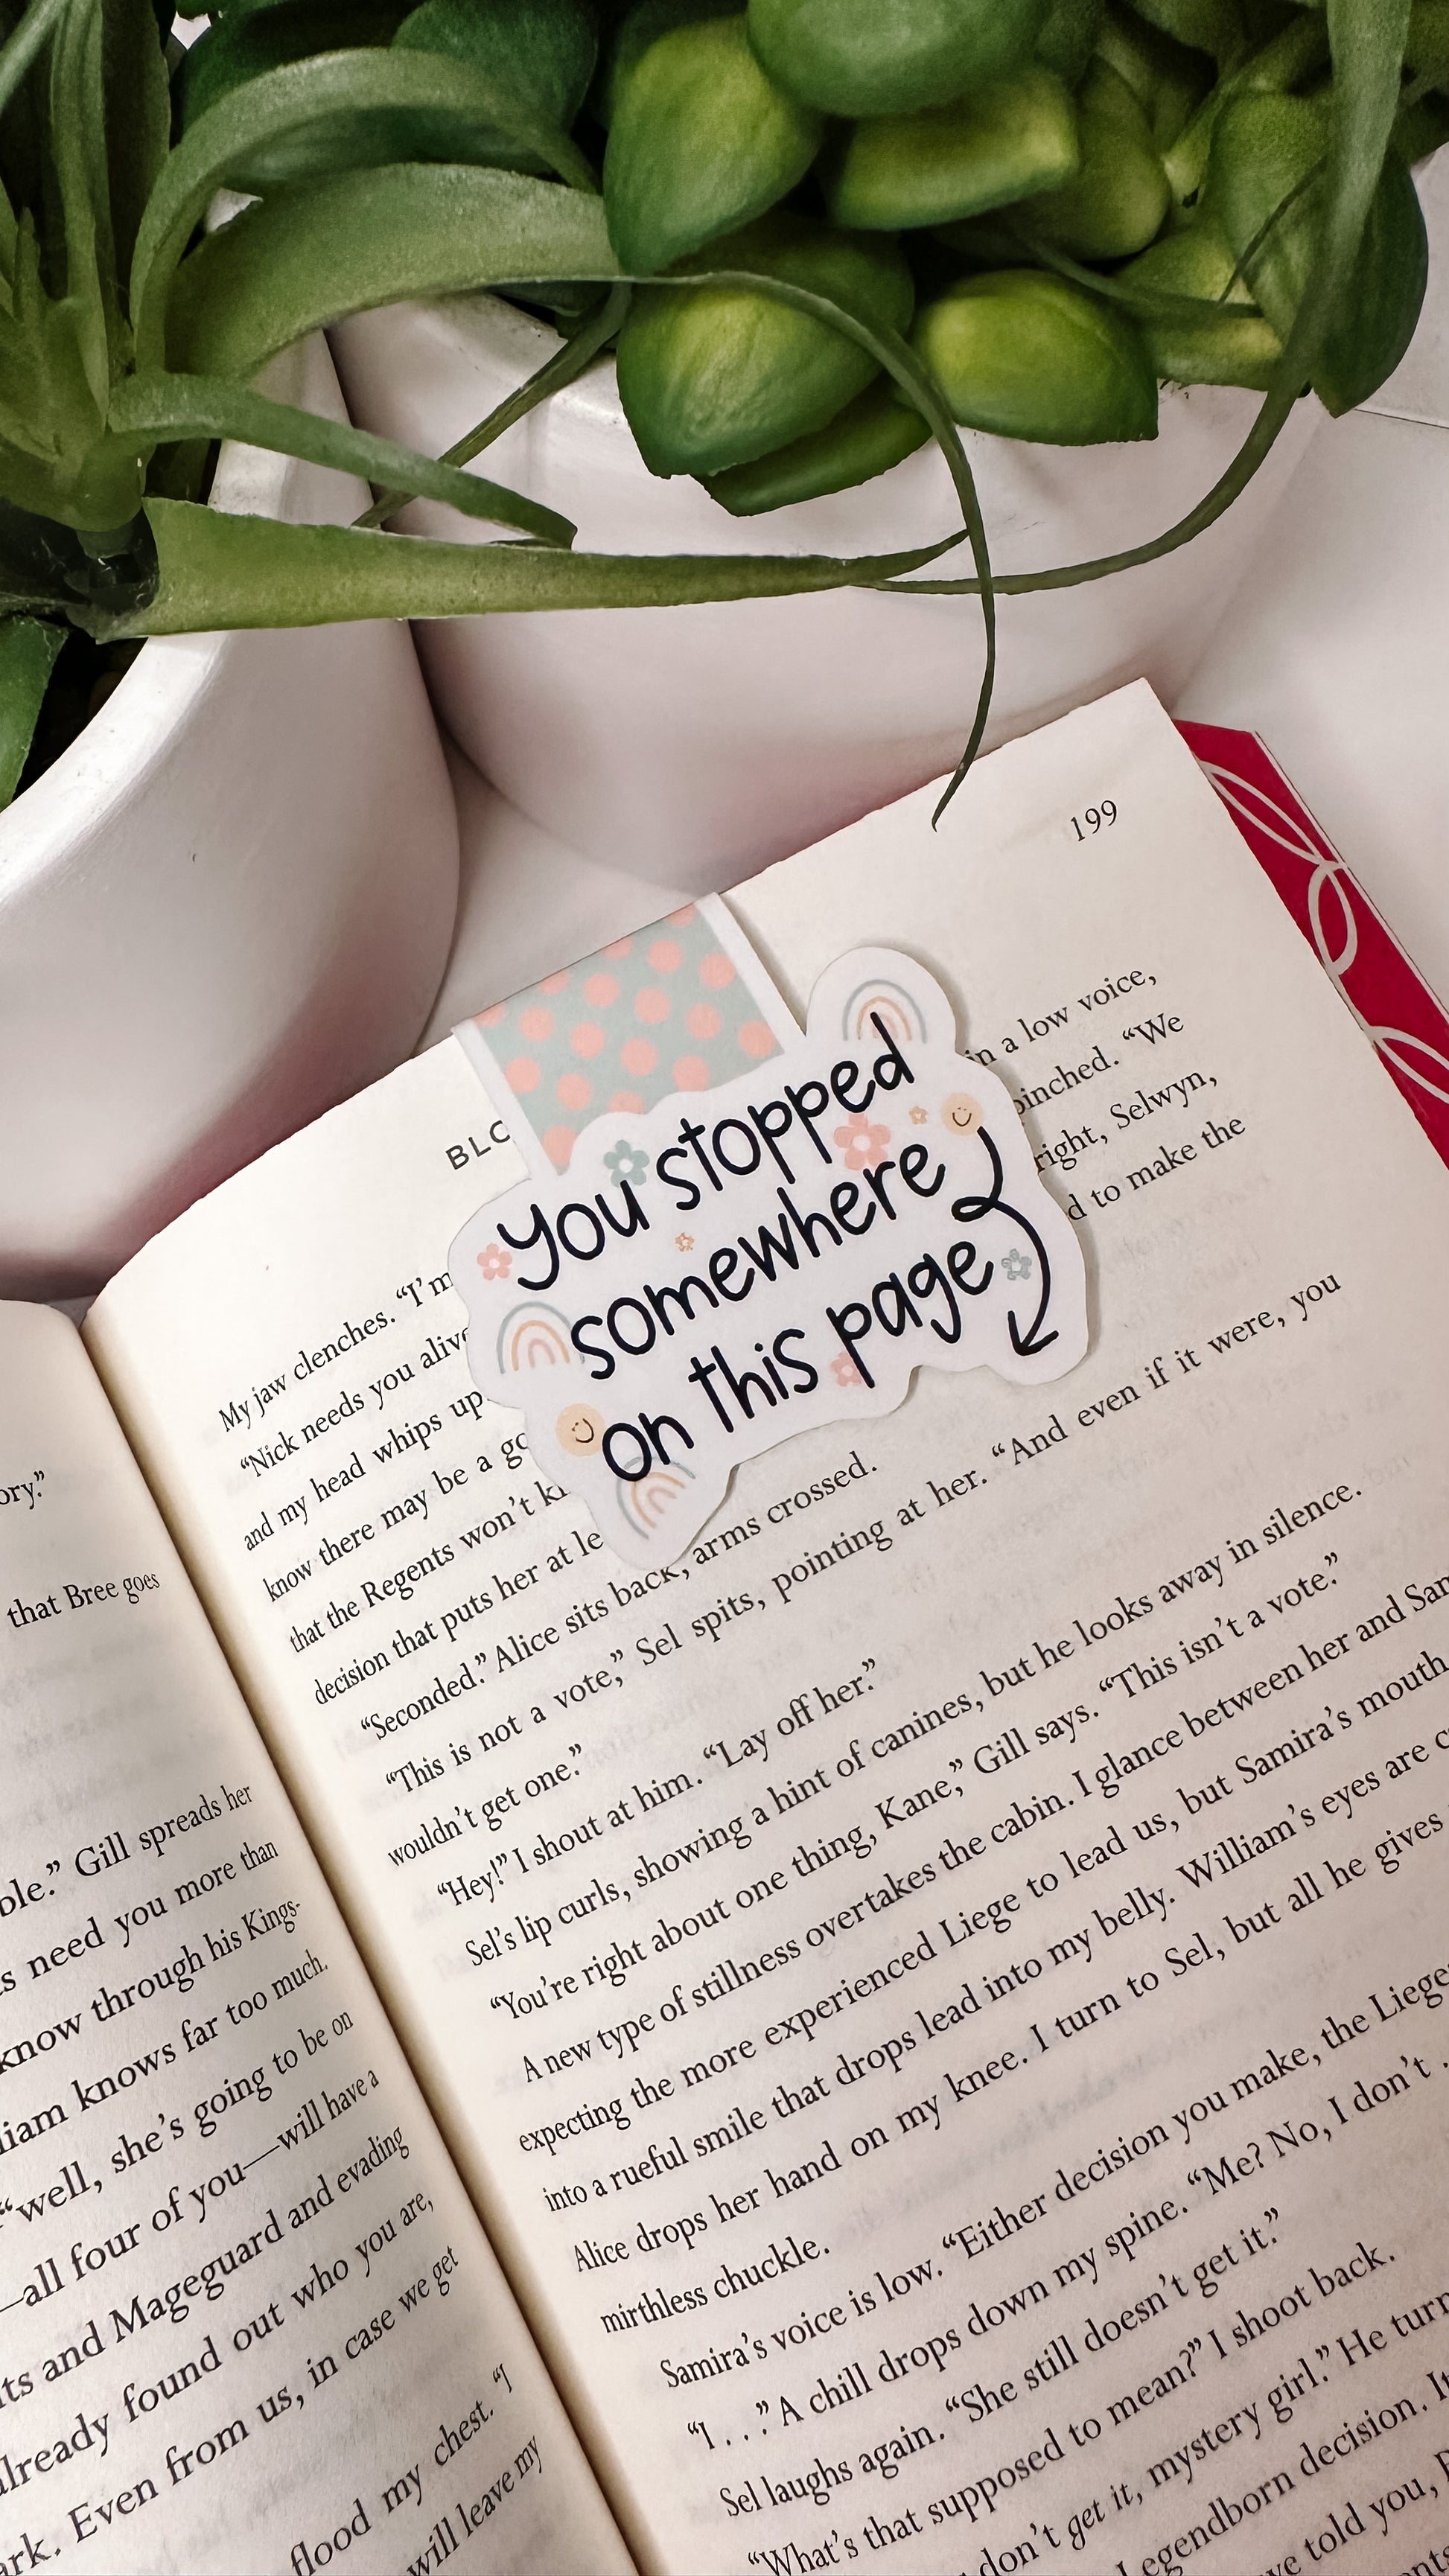 199
You stopped
somewhere
on this page
BLO
in a low voice,
My jaw clenches. “I’m
pinched. “We
“Nick needs you alive
right, Selwyn,
and my head whips up.
d to make the
know there may be a go
that the Regents won’t k
decision that puts her at le
“Seconded.” Alice sits back, arms crossed.
“This is not a vote,” Sel spits, pointing at her. “And even if it were, you
wouldn’t get one.”
“Hey!” I shout at him. “Lay off her.”
Sel’s lip curls, showing a hint of canines, but he looks away in silence.
“You’re right about one thing, Kane,” Gill says. “This isn’t a vote.”
A new type of stillness overtakes the cabin. I glance between her and Sam
expecting the more experienced Liege to lead us, but Samira’s mouth
into a rueful smile that drops lead into my belly. William’s eyes are c
Alice drops her hand on my knee. I turn to Sel, but all he gives
mirthless chuckle.
Samira’s voice is low. “Either decision you make, the Liege
“I . . .” A chill drops down my spine. “Me? No, I don’t .
Sel laughs again. “She still doesn’t get it.”
“What’s that supposed to mean?” I shoot back.
don’t get it, mystery girl.” He turn
Legendborn decision. It
ve told you,
ory.”
that Bree goes
ble.” Gill spreads her
s need you more than
know through his Kings-
liam knows far too much.
“well, she’s going to be on
—all four of you—will have a
ts and Mageguard and evading
already found out who you are,
ark. Even from us, in case we get
flood my chest. “I
will leave my